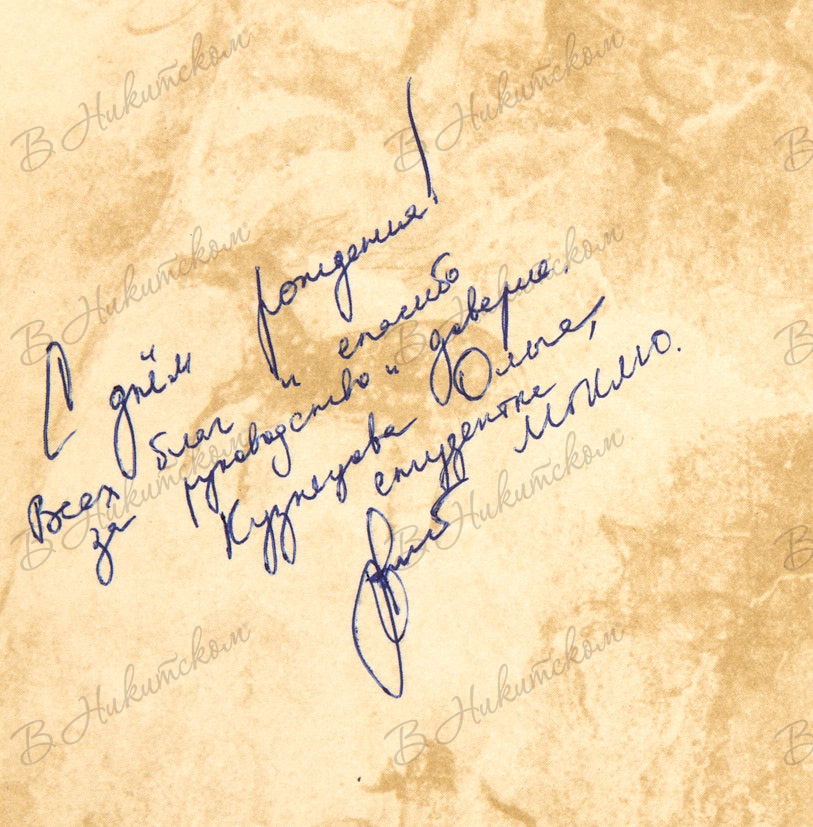 С днём рождения!
Всех благ и спасибо
за руководство и доверие.
Кузнецова Ольга,
студентка
В Никитском
В Никитском
В Никитском
В Никитском
В Никитском
В Никитском
В Никитском
В Никитском